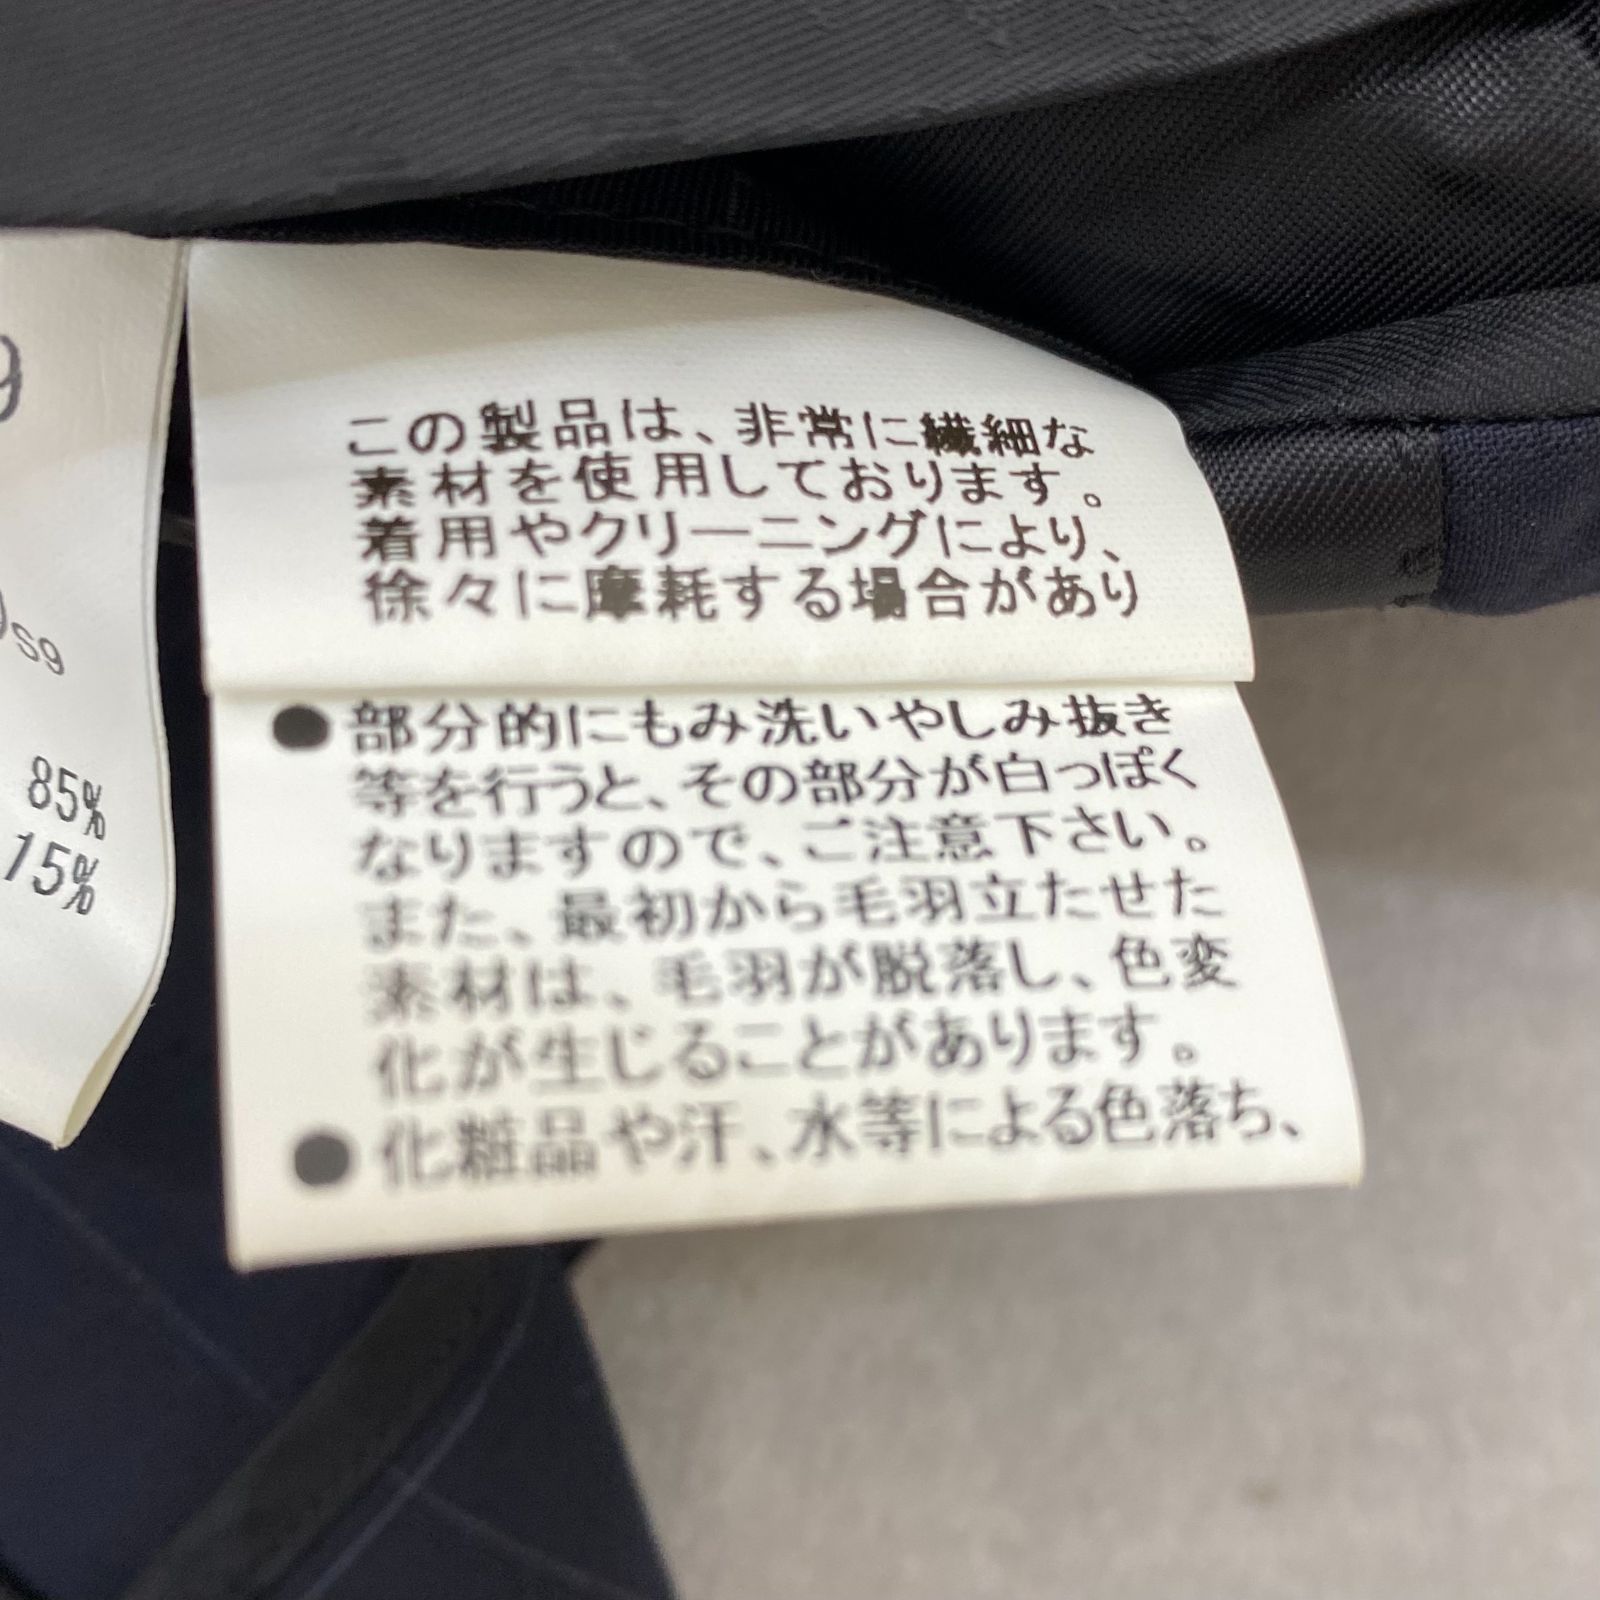 9
S9
85%
15%
この製品は、非常に繊細な
素材を使用しております。
着用やクリーニングにより、
徐々に摩耗する場合があり
●部分的にもみ洗いやしみ抜き
等を行うと、その部分が白っぽく
なりますので、ご注意下さい。
また、最初から毛羽立たせた
素材は、毛羽が脱落し、色変
化が生じることがあります。
●化粧品や汗、水等による色落ち、